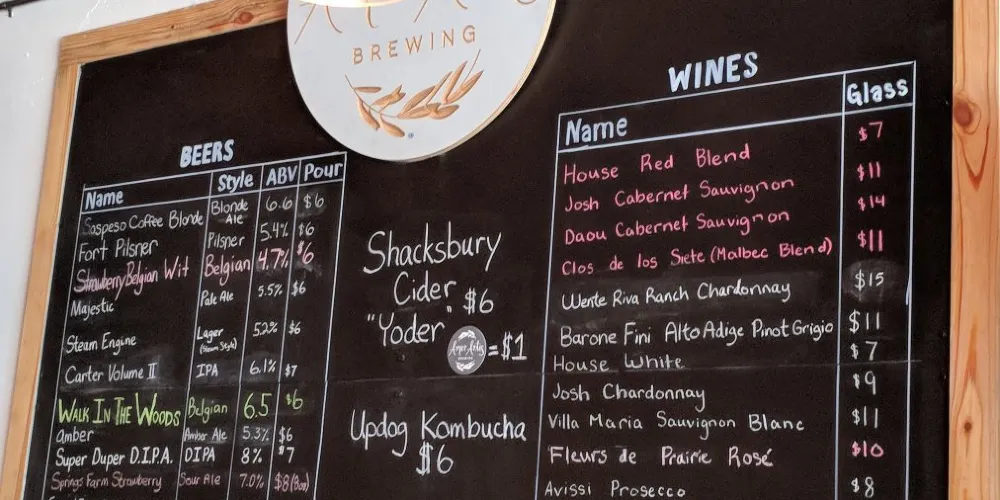 BREWING
BEERS
Name Style ABV Pour
Sospeso Coffee Blonde Blonde Ale 6.6 $6
Fort Pilsner Pilsner 5.4% $6
Strawberry Belgian Wit Belgian 4.7% $6
Majestic Pale Ale 5.5% $6
Steam Engine Lager (Steam Style) 5.2% $6
Carter Volume II IPA 6.1% $7
WALK IN THE WOODS Belgian 6.5 $6
Amber Amber Ale 5.3% $6
Super Duper D.I.P.A. DIPA 8% $7
Springs Farm Strawberry Sour Ale 7.0% $8
Shacksbury
Cider $6
"Yoder"
= $1
Updog Kombucha
$6
WINES
Name Glass
House Red Blend $7
Josh Cabernet Sauvignon $11
Daou Cabernet Sauvignon $14
Clos de los Siete (Malbec Blend) $11
Wente Riva Ranch Chardonnay $15
Barone Fini Alto Adige Pinot Grigio $11
House White $7
Josh Chardonnay $9
Villa Maria Sauvignon Blanc $11
Fleurs de Prairie Rosé $10
Avissi Prosecco $8